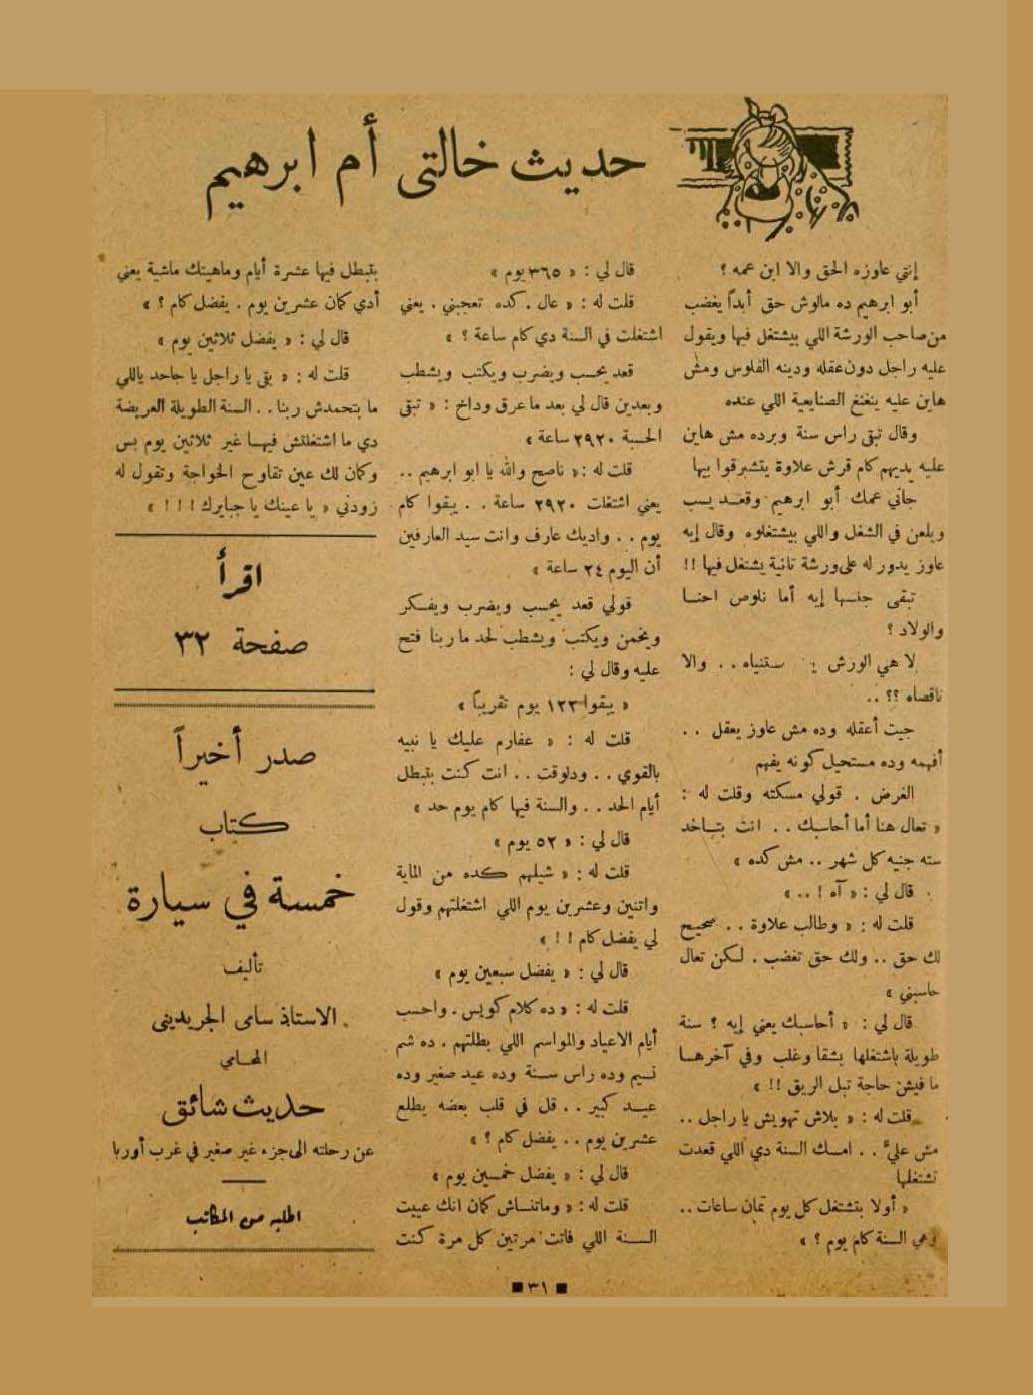 حديث خالتى أم ابرهيم
إنتي عاوزه الحق والا ابن عمه ؟
أبو ابرهيم ده مالوش حق أبداً يغضب
من صاحب الورشة اللي بيشتغل فيها ويقول
عليه راجل دون عقله ودينه الفلوس ومش
هاين عليه ينغنغ الصنايعية اللي عنده
وقال تبقى راس سنة وبرده مش هاين
عليه يديهم كام قرش علاوة يتشبرقوا بيها
جاني عمك أبو ابرهيم وقعد يسب
ويلعن في الشغل واللي بيشتغلوه وقال إيه
عاوز يدور له على ورشة تانية يشتغل فيها !!
تبقى جنـها إيه أما نلوص احنا
والولاد ؟
لا هي الورش ستنياه . . والا
ناقصاه ؟؟ ..
جيت أعقله وده مش عاوز يعقل . .
أفهمه وده مستحيل كونه يفهم
الغرض . قولي مسكته وقلت له :
« تعال هنا أما أحاسبك . . انت بتاخد
سته جنيه كل شهر .. مش كده »
قال لي : « آه ! .. »
قلت له : « وطالب علاوة . . صحيح
لك حق .. ولك حق تغضب . لكن تعال
حاسبني »
قال لي : « أحاسبك يعني إيه ؟ سنة
طويلة باشتغلها بشقا وغلب وفي آخرها
ما فيش حاجة تبل الريق !! »
قلت له : « بلاش تهويش يا راجل ..
مش عليّ . . امسك السنة دي اللي قعدت
تشتغلها
« أولا بتشتغل كل يوم تمان ساعات ..
وهي السنة كام يوم ؟ »
قال لي : « ٣٦٥ يوم »
قلت له : « عال . كده تعجبني . يعني
اشتغلت في السنة دي كام ساعة ؟ »
قعد يحسب ويضرب ويكتب ويشطب
وبعدين قال لي بعد ما عرق وداخ : « تبقى
الحسبة ٢٩٢٠ ساعة »
قلت له : « ناصح والله يا ابو ابرهيم ..
يعني اشتغلت ٢٩٢٠ ساعة . . يبقوا كام
يوم . . واديك عارف وانت سيد العارفين
أن اليوم ٢٤ ساعة »
قولي قعد يحسب ويضرب ويفكر
ويخمن ويكتب ويشطب لحد ما ربنا فتح
عليه وقال لي :
« يبقوا ١٢٢ يوم تقريباً »
قلت له : « عفارم عليك يا نبيه
بالقوي . . ودلوقت . . انت كنت بتبطل
أيام الحد . . والسنة فيها كام يوم حد »
قال لي : « ٥٢ يوم »
قلت له : « شيلهم كده من الماية
واتنين وعشرين يوم اللي اشتغلتهم وقول
لي يفضل كام ! ! »
قال لي : « يفضل سبعين يوم »
قلت له : « ده كلام كويس . واحسب
أيام الاعياد والمواسم اللي بطلتهم . ده شم
نسيم وده راس سنة وده عيد صغير وده
عيد كبير . . قل في قلب بعضه يطلع
عشرين يوم . . يفضل كام ؟ »
قال لي : « يفضل خمسين يوم »
قلت له : « وماتنساش كمان انك عييت
السنة اللي فاتت مرتين كل مرة كنت
بتبطل فيها عشرة أيام وماهيتك ماشية يعني
أدي كمان عشرين يوم . يفضل كام ؟ »
قال لي : « يفضل ثلاثين يوم »
قلت له : « بقى يا راجل يا جاحد ياللي
ما بتحمدش ربنا . . السنة الطويلة العريضة
دي ما اشتغلتش فيها غير ثلاثين يوم بس
وكمان لك عين تقاوح الخواجة وتقول له
زودني « يا عينك يا جبايرك ! ! ! »
اقرأ
صفحة ٣٢
صدر أخيراً
كتاب
خمسة في سيارة
تأليف
الاستاذ سامى الجريدينى
المحامي
حديث شائق
عن رحلته الى جزء غير صغير في غرب أوربا
اطلبه من المكاتب
٣١